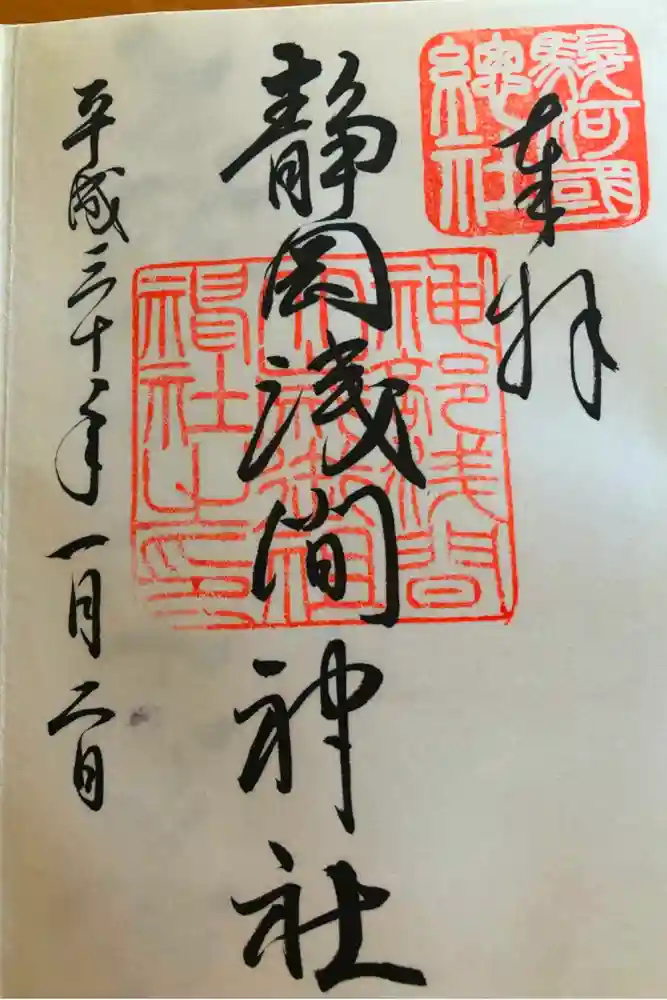 駿河國
總社
奉拝
静岡浅間神社
神部浅間
大歳御祖
神社之印
平成三十年一月二日